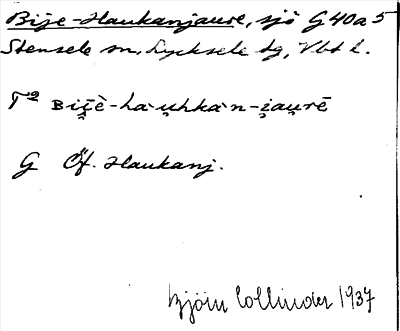 Bije-Haukanjaure, sjö G 40 a 5
Stensele sn, Lycksele dg, Vbt l.
T² Biįè-hàu̯hkàn-i̯au̯rē
G Öf. Haukanj.
Björn Collinder 1937